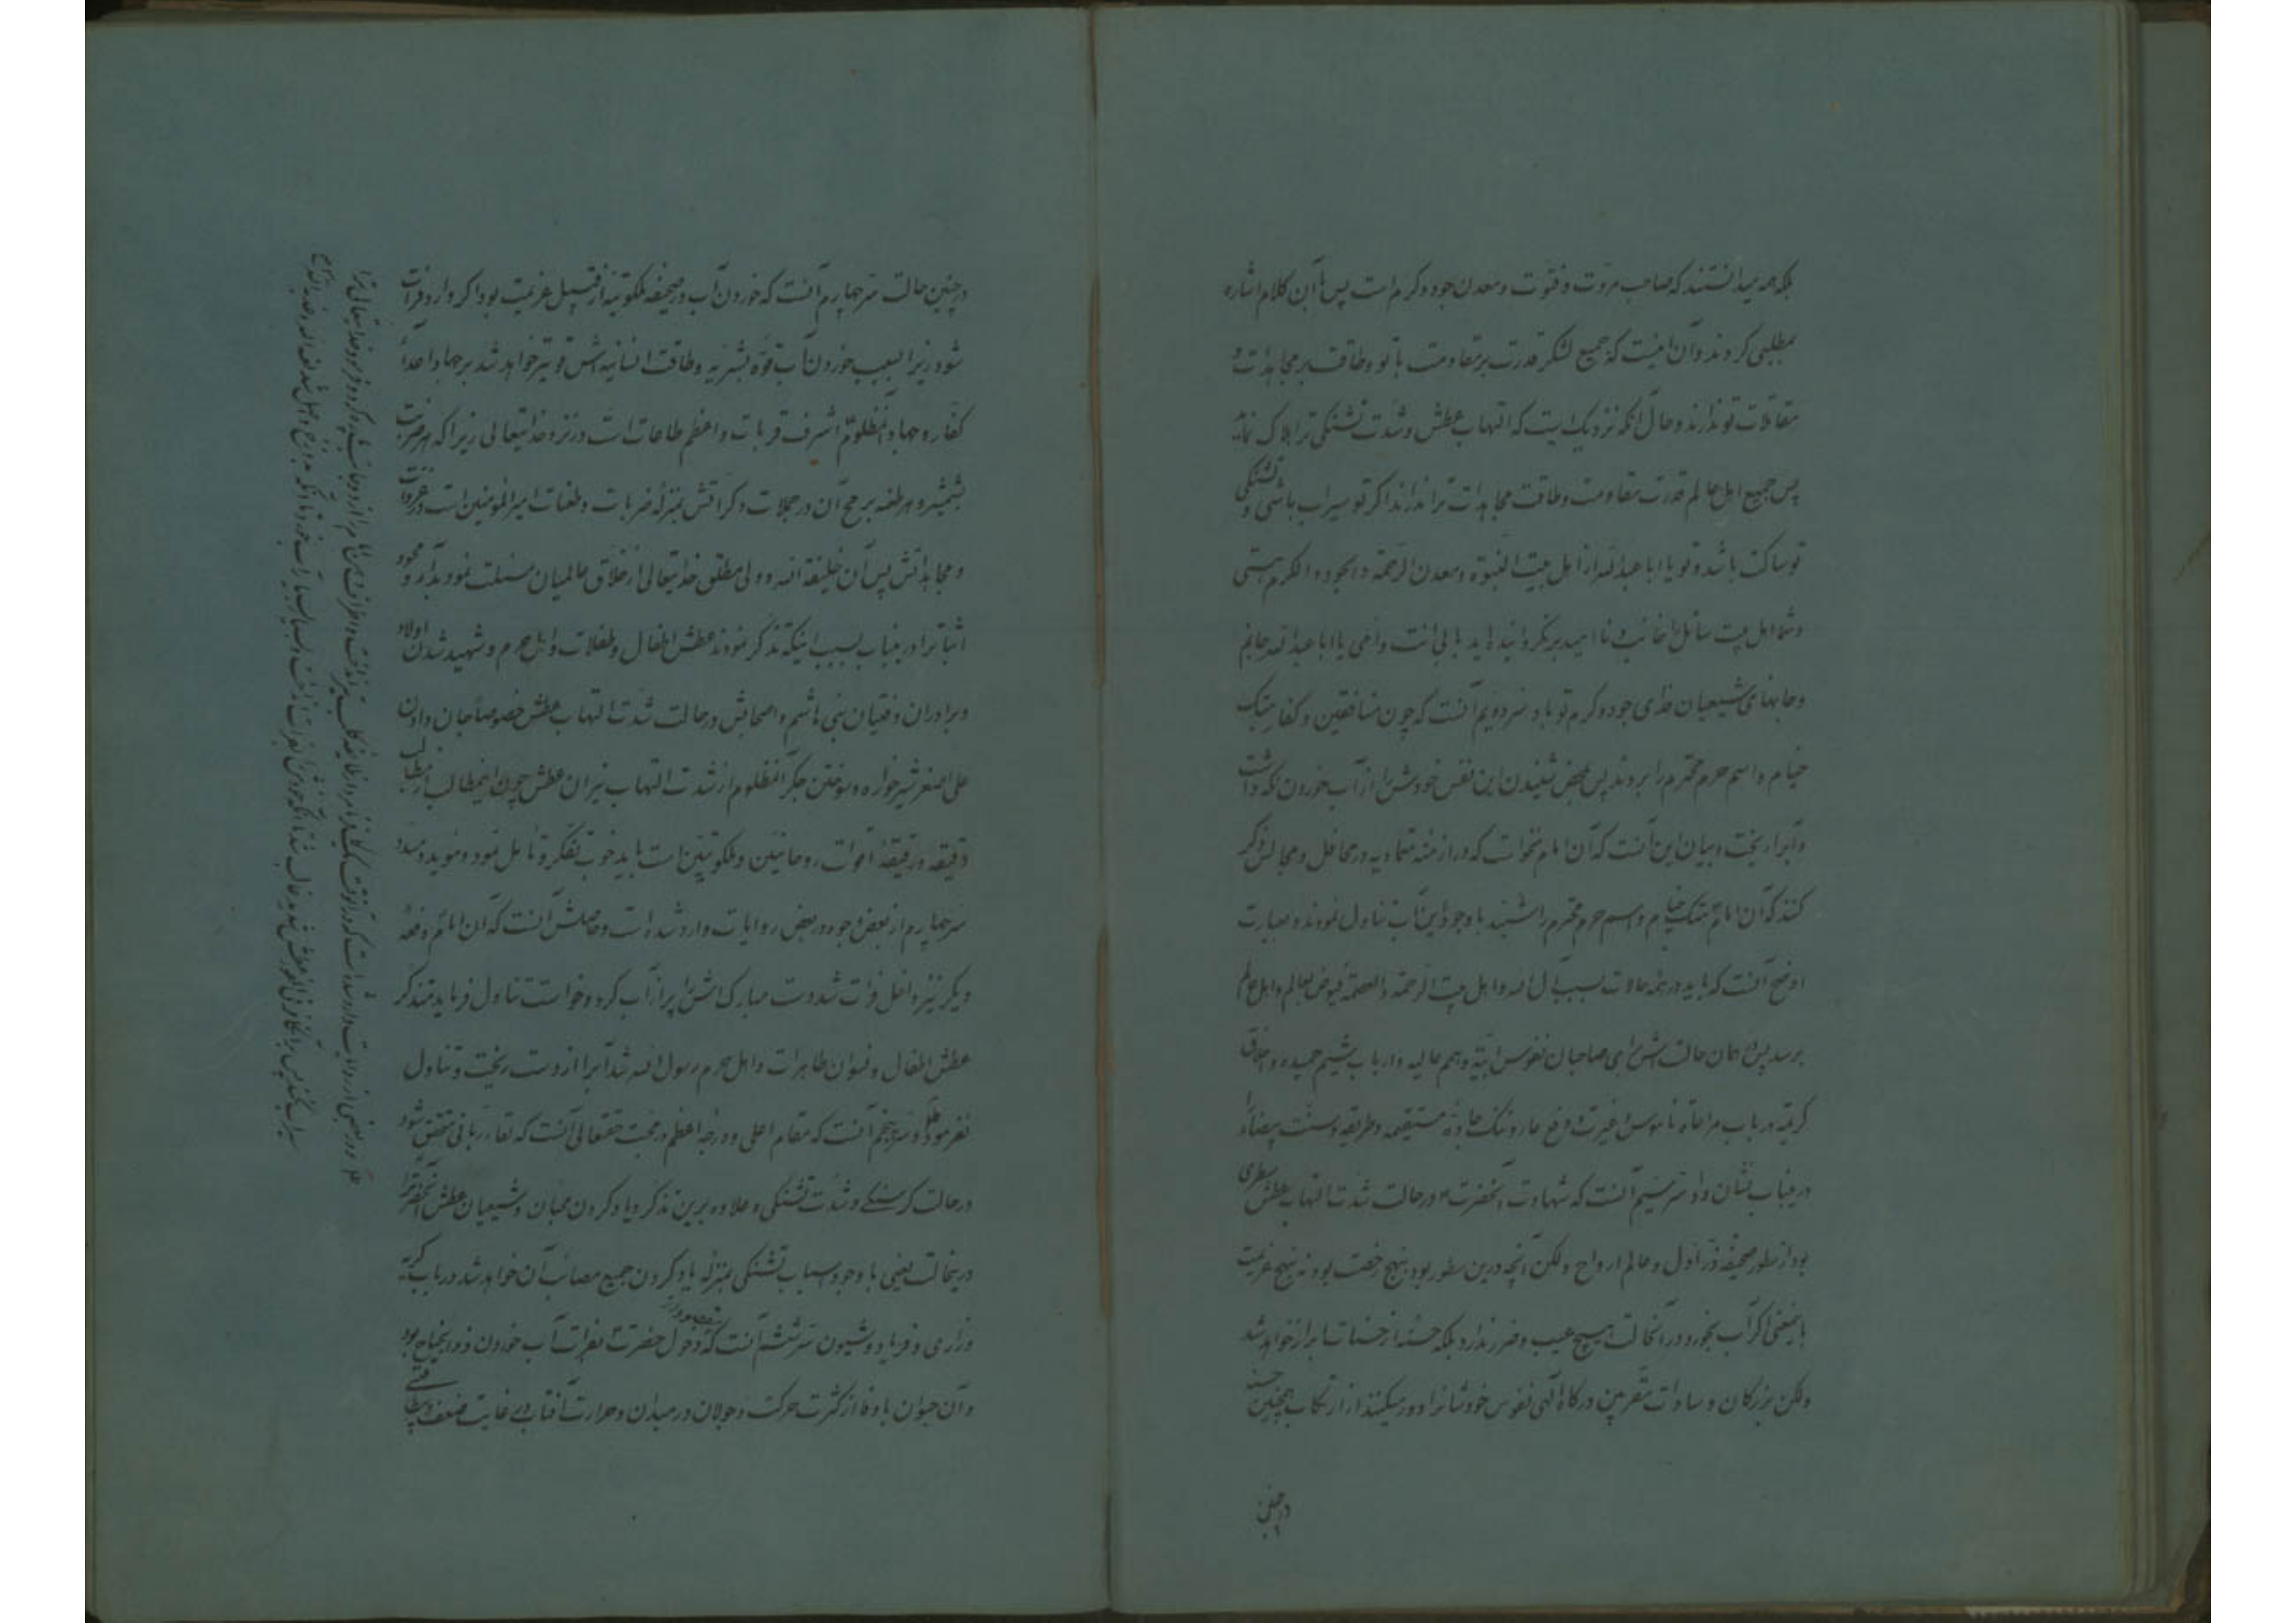 بلکه همه میدانستند که صاحب مروّت و فتوّت و معدن جود و کرم است پس بآن کلام اشاره
بمطلبی کردند و آن اینست که جمیع لشکر قدرت بر مقاومت با تو و طاقت بر مجاهدات و
مقاتلات تو ندارند و حال آنکه نزدیک است که التهاب عطش و شدّت تشنگی ترا هلاک نماید
پس جمیع اهل عالم قدرت مقاومت و طاقت مجاهدات ترا ندارند اگر تو سیراب باشی و تشنگی
تو ساکت باشد و تو یا ابا عبد الله از اهل بیت النبوّة و معدن الرحمة و الجود و الکرم هستی
و شما اهل بیت سائل را خائب و ناامید برنگردانیده‌اید بابی انت و امی یا ابا عبد الله جانم
و جانهای شیعیان فدای جود و کرم تو باد سر دویم آنست که چون منافقین و کفار هتک
خیام و اسم حرم محترم را بردند پس بمحض شنیدن این نفس خودش را از آب خوردن نگه داشت
و آبرا ریخت و بیان این آنست که آن امام نخواست که در ازمنه متمادیه در محافل و مجالس ذکر
کنند که آن امام هتک خیام و اسم حرم محترم را شنید با وجود این آب تناول نمودند و بعبارت
اوضح آنست که باید در همه حالات بسبب آل الله و اهل بیت الرحمة و العصمة فیوض بعالم و اهل عالم
برسد پس در آن حالتش ای صاحبان نفوس ابیّه و همم عالیه و ارباب شیم حمیده و اخلاق
کریمه در باب مراعاة ناموس و غیرت و رفع عار و ننگ جادّه مستقیمه و طریقه و سنّت بیضاء را
در اینباب نشان داد سر سیم آنست که شهادت آنحضرت در حالت شدّت التهاب عطش سطری
بود از سطور صحیفه ذرّ اول و عالم ارواح و لکن آنچه درین سطور بود بنهج رخصت بود نه بنهج عزیمت
باینمعنی اگر آب بخورد در آنحالت هیچ عیب و ضرر ندارد بلکه حسنه از حسنات ابرار خواهد شد
و لکن بزرگان و سادات مقرّبین درگاه الهی نفوس خودشانرا دور میکنند از ارتکاب همچنین حسنه
در چنین
در چنین حالت سر چهارم آنست که خوردن آب در صحیفه ملکوتیه از قبیل عزیمت بود اگر وارد فرات
شود زیرا بسبب خوردن آب قوّه بشریه و طاقت انسانیه‌اش قویتر خواهد شد بر جهاد اعداء
کفار و جهاد آنمظلوم اشرف قربات و اعظم طاعات است در نزد خدایتعالی زیرا که هر ضربت
بشمشیر و هر طعنه برمح آن در حملات و کراتش بمنزله ضربات و طعنات امیرالمومنین است در غزوات
و مجاهداتش پس آن خلیفة الله و ولی مطلق خدایتعالی از خلاق عالمیان مسئلت نمود بدا و محو
اثباترا در اینباب بسبب اینکه تذکر نمودند عطش اطفال و طفلات و اهل حرم و شهید شدن اولاد
و برادران و فتیان بنی هاشم و اصحابش در حالت شدّت التهاب عطش خصوصا جان دادن
علی اصغر شیرخواره و سوختن جگر آنمظلوم از شدت التهاب نیران عطش چون اینمطالب از مطالب
دقیقه و رقیقه اموات روحانیین و ملکوتیین است باید خوب تفکر و تامل نمود و موید و مسدد
سر چهارم از بعض وجوه در بعض روایات وارد شده است و حاصلش آنست که آن امام دفعه
دیگر نیز داخل فرات شد دست مبارک‌اش را پر از آب کرد و خواست تناول فرماید متذکر
عطش اطفال و نسوان طاهرات و اهل حرم رسول الله شد آبرا از دست ریخت و تناول
نفرمود و سر پنجم آنست که مقام اعلی و درجه اعظم در محبت حقتعالی آنست که لقاء ربانی متحقق شود
در حالت گرسنگی و شدّت تشنگی و علاوه برین تذکر و یاد کردن محبان و شیعیان عطش آنحضرترا
در اینحالت یعنی با وجود اسباب تشنگی بمنزله یاد کردن جمیع مصائب آن خواهد شد در باب گریه
و زاری و فریاد و شیون سر ششم آنست که مقصود از دخول حضرت بفرات آب خوردن ذوالجناح بود
و آن حیوان باوفا از کثرت حرکت و جولان در میدان و حرارت آفتاب در غایت ضعف و بیطاقتی